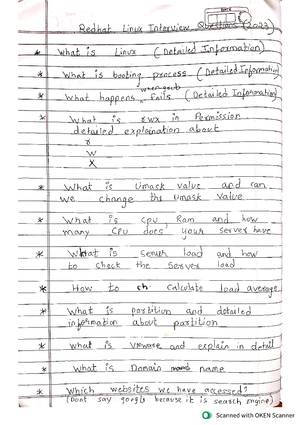 Redhat Linux Interview Questions (2023)
* What is Linux (Detailed Information)
* What is booting process (Detailed Information)
* What happens when grub fails (Detailed Information)
* What is rwx in Permission
detailed explaination about
r
W
X
* What is Umask value and can
we change the Umask value
* What is cpu Ram and how
many CPU does your server have
* What is server load and how
to check the Server load
* How to calculate load average
* What is partition and detailed
information about partition
* what is vmware and explain in detail
* what is Domain name
* Which websites we have accessed?
(Dont say google because it is search engine)
Scanned with OKEN Scanner